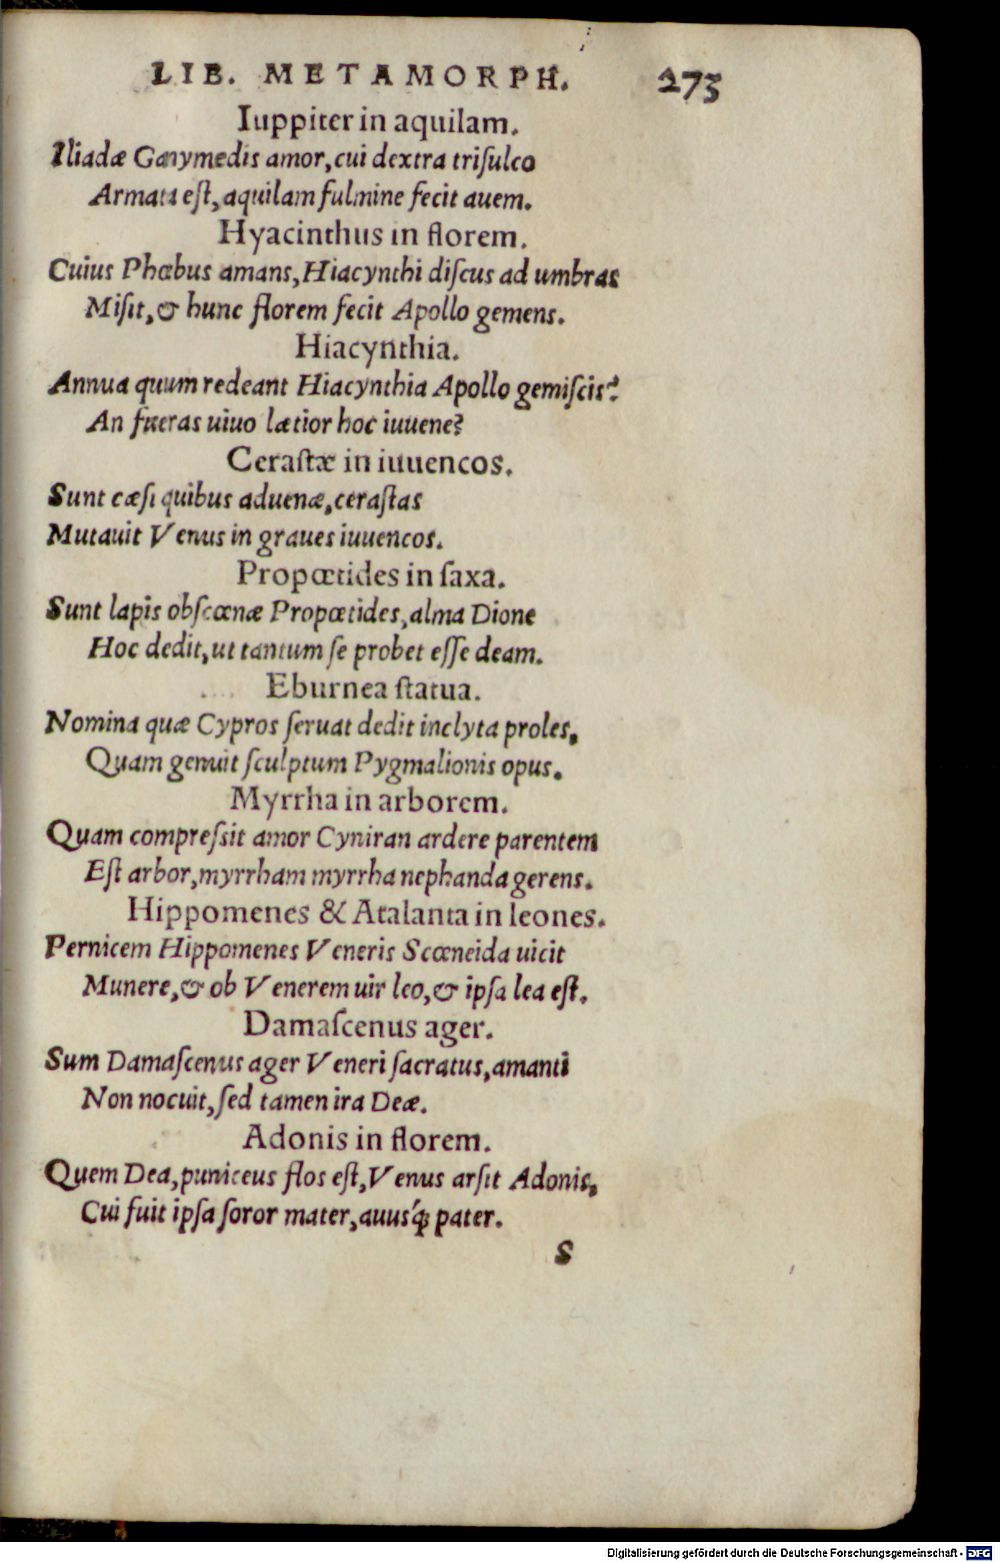 LIB. METAMORPH. 273
Iuppiter in aquilam.
Iliadæ Ganymedis amor, cui dextra trisulco
Armata est, aquilam fulmine fecit auem.
Hyacinthus in florem.
Cuius Phœbus amans, Hiacynthi discus ad umbras
Misit, & hunc florem fecit Apollo gemens.
Hiacynthia.
Annua quum redeant Hiacynthia Apollo gemiscis?
An fueras uiuo lætior hoc iuuene?
Cerastæ in iuuencos.
Sunt cæsi quibus aduenæ, cerastas
Mutauit Venus in graues iuuencos.
Propœtides in saxa.
Sunt lapis obscœnæ Propœtides, alma Dione
Hoc dedit, ut tantum se probet esse deam.
Eburnea statua.
Nomina quæ Cypros seruat dedit inclyta proles,
Quam genuit sculptum Pygmalionis opus.
Myrrha in arborem.
Quam compressit amor Cyniran ardere parentem
Est arbor, myrrham myrrha nephanda gerens.
Hippomenes & Atalanta in leones.
Pernicem Hippomenes Veneris Scœneida uicit
Munere, & ob Venerem uir leo, & ipsa lea est.
Damascenus ager.
Sum Damascenus ager Veneri sacratus, amanti
Non nocuit, sed tamen ira Deæ.
Adonis in florem.
Quem Dea, puniceus flos est, Venus arsit Adonis,
Cui fuit ipsa soror mater, auusq́; pater.
S
Digitalisierung gefördert durch die Deutsche Forschungsgemeinschaft - DFG